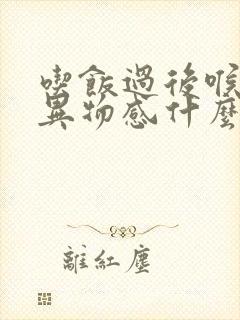 喫飯過後喉
異物感什麼
離紅塵